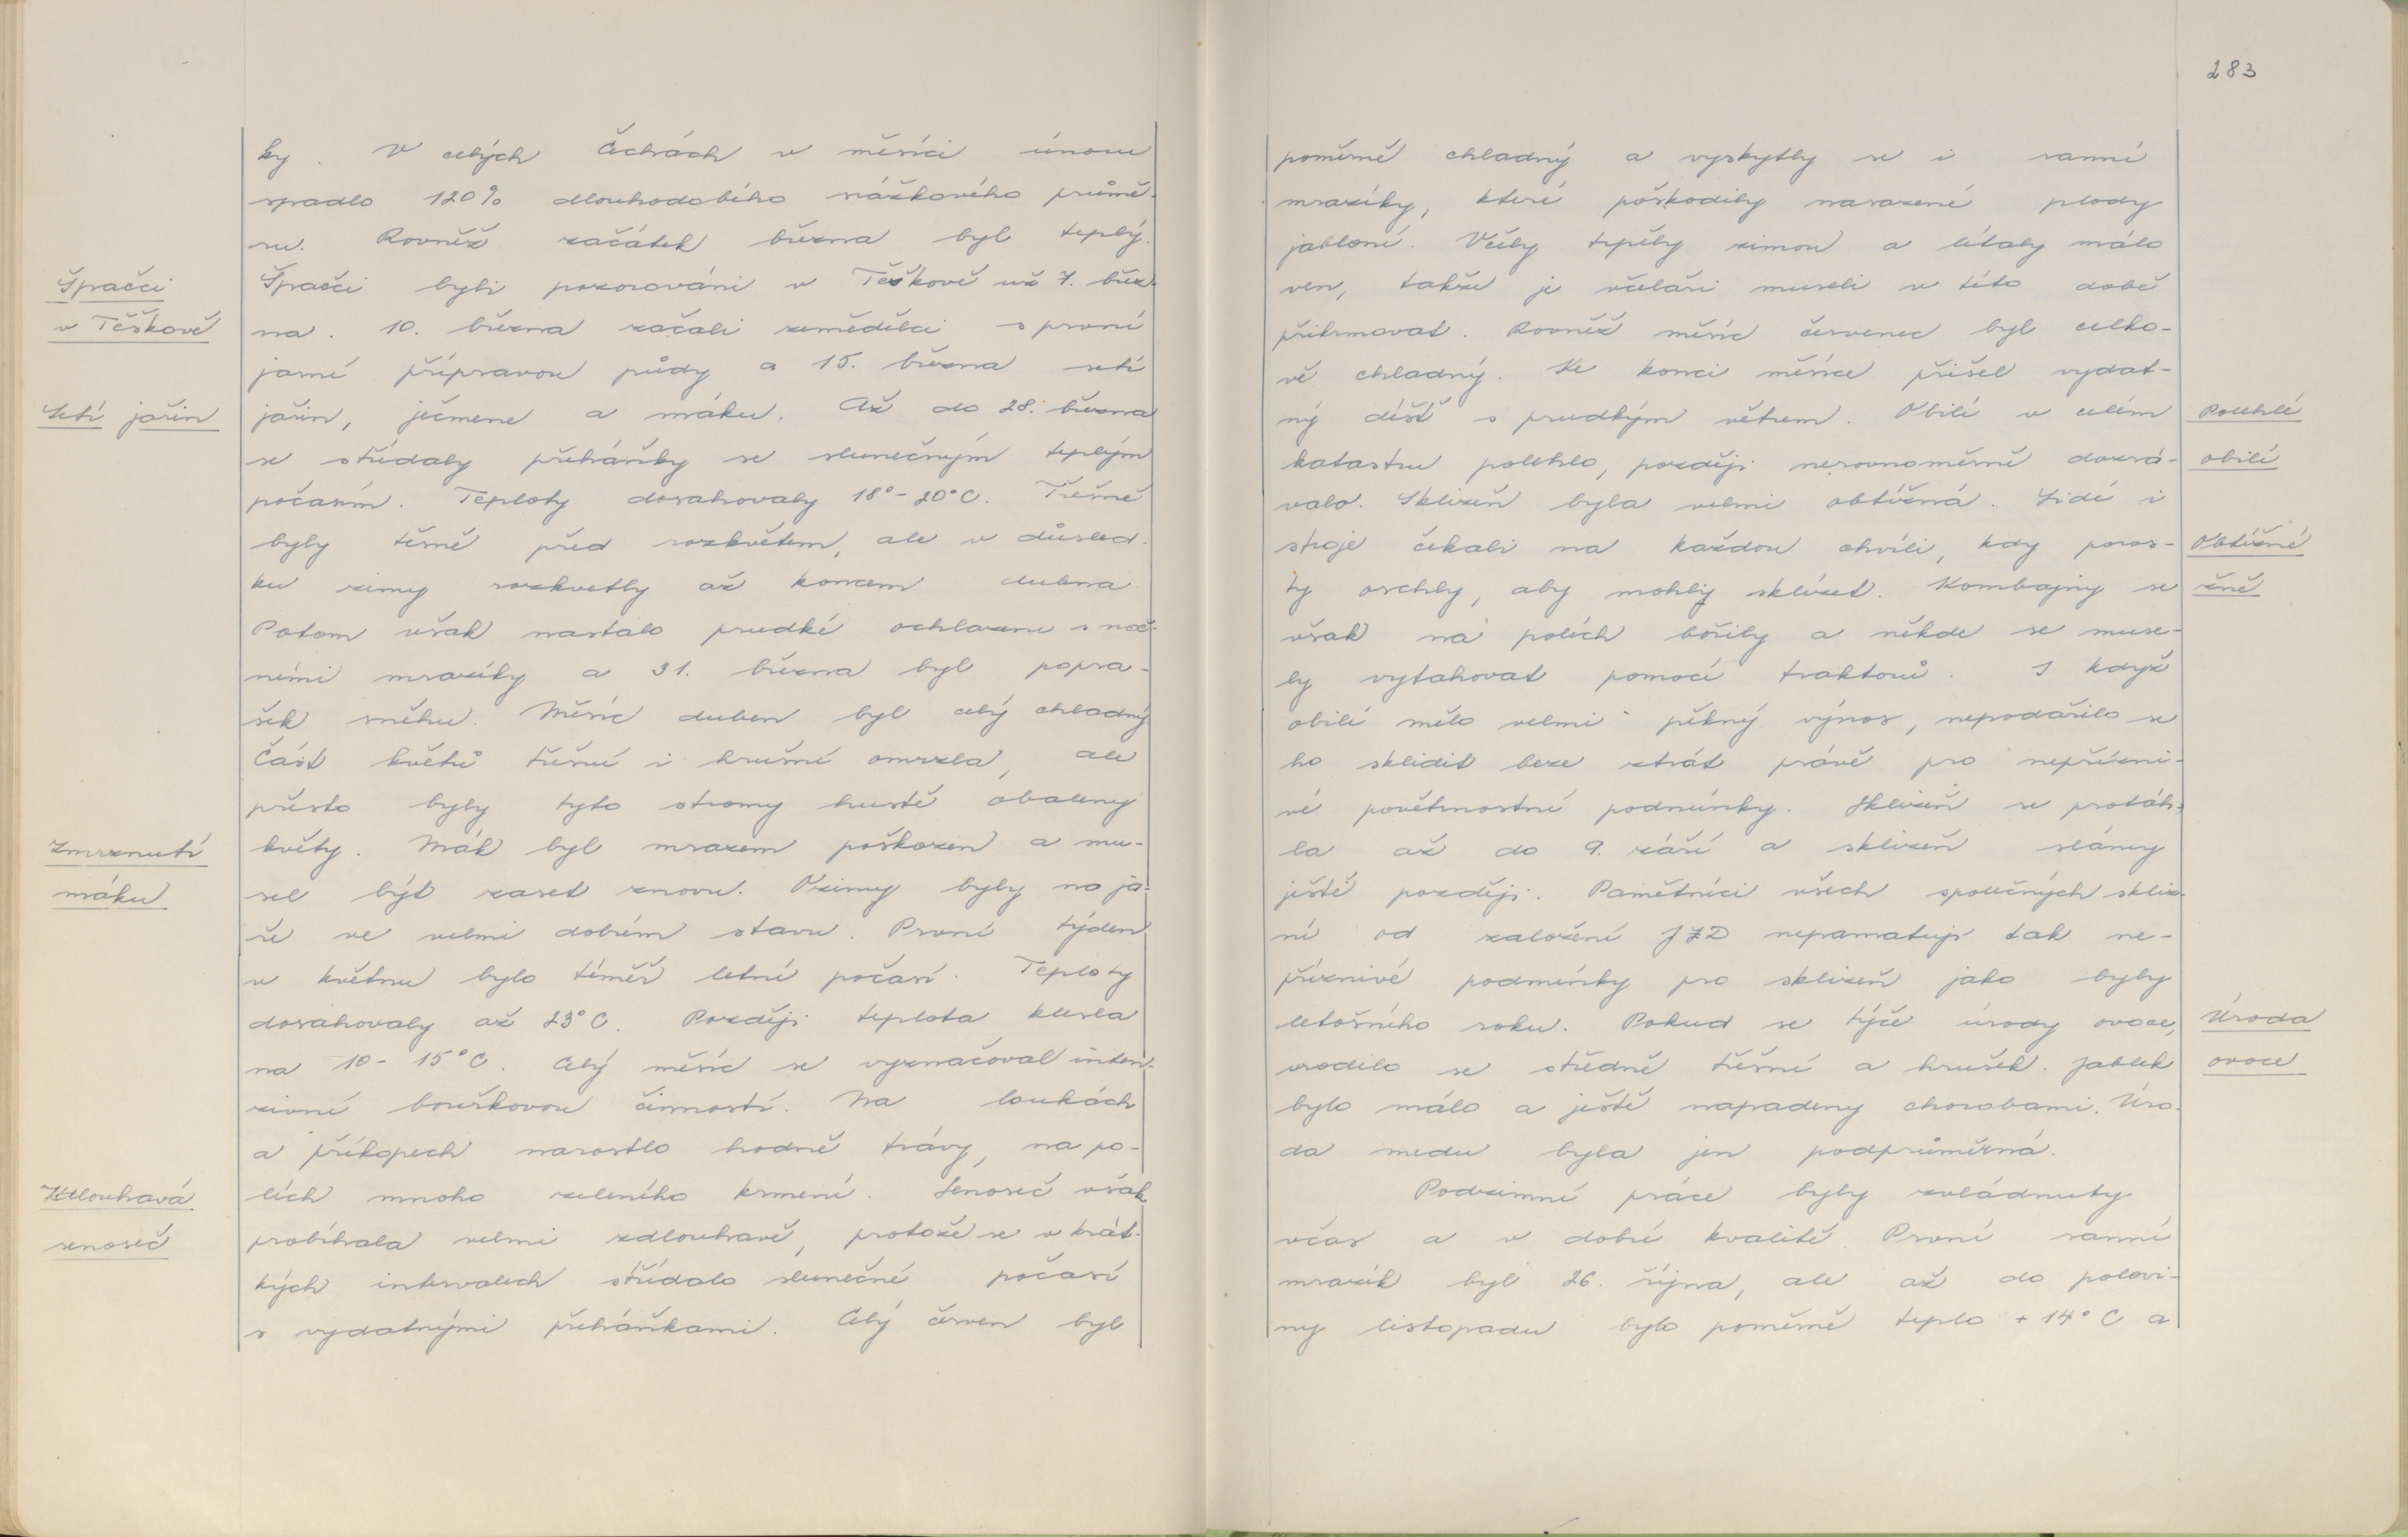 ky. V celých Čechách v měsíci únoru
spadlo 120% dlouhodobého srážkového průmě-
ru. Rovněž začátek března byl teplý.
Špačci
Špačci byli pozorováni v Těškově už 7. břez-
v Těškově
na. 10. března začali zemědělci s první
jarní přípravou půdy a 15. března setí
Setí jařin
jařin, ječmene a máku. Až do 28. března
se střídaly přeháňky se slunečným teplým
počasím. Teploty dosahovaly 18°- 20°C. Třešně
byly těsně před rozkvětem, ale v důsled-
ku zimy rozkvetly až koncem dubna
Potom však nastalo prudké ochlazení s noč-
ními mrazíky a 31. března byl popra-
šek sněhu. Měsíc duben byl celý chladný
Část květů třešní i hrušní omrzla, ale
přesto byly tyto stromy hustě obaleny
Zmrznutí
květy. Mák byl mrazem poškozen a mu-
máku
sel být zaset znovu. Ozimy byly na ja-
ře ve velmi dobrém stavu. První týden
v květnu bylo téměř letní počasí. Teploty
dosahovaly až 23°C. Později teplota klesla
na 10- 15°C. Celý měsíc se vyznačoval inten-
zivní bouřkovou činností. Na loukách
a příkopech narostlo hodně trávy, na po-
Zdlouhavá
lích mnoho zeleného krmení. Senoseč však
senoseč
probíhala velmi zdlouhavě, protože se v krát-
kých intervalech střídalo slunečné počasí
s vydatnými přeháňkami. Celý červen byl
283
poměrně chladný a vyskytly se i ranní
mrazíky, které poškodily nasazené plody
jabloní. Včely trpěly zimou a létaly málo
ven, takže je včelaři museli v této době
přikrmovat. Rovněž měsíc červenec byl celko-
vě chladný. Ke konci měsíce přišel vydat-
ný déšť s prudkým větrem. Obilí v celém
Polehlé
katastru polehlo, později nerovnoměrně dozrá-
obilí
valo. Sklizeň byla velmi obtížná. Lidé i
stroje čekali na každou chvíli, kdy poros-
Obtížné
ty oschly, aby mohly sklízet. Kombajny se
žně
však na polích bořily a někde se muse-
ly vytahovat pomocí traktorů. I když
obilí mělo velmi pěkný výnos, nepodařilo se
ho sklidit beze ztrát právě pro nepřízni-
vé povětrnostní podmínky. Sklizeň se protáh-
la až do 9. září a sklizeň slámy
ještě později. Pamětníci všech společných skliz-
ní od založení JZD nepamatují tak ne-
příznivé podmínky pro sklizeň jako byly
letošního roku. Pokud se týče úrody ovoce,
Úroda
urodilo se středně třešní a hrušek. Jablek
ovoce
bylo málo a ještě napadeny chorobami. Úro-
da medu byla jen podprůměrná.
Podzimní práce byly zvládnuty
včas a v dobré kvalitě. První ranní
mrazík byl 26. října, ale až do polovi-
ny listopadu bylo poměrně teplo + 14°C a